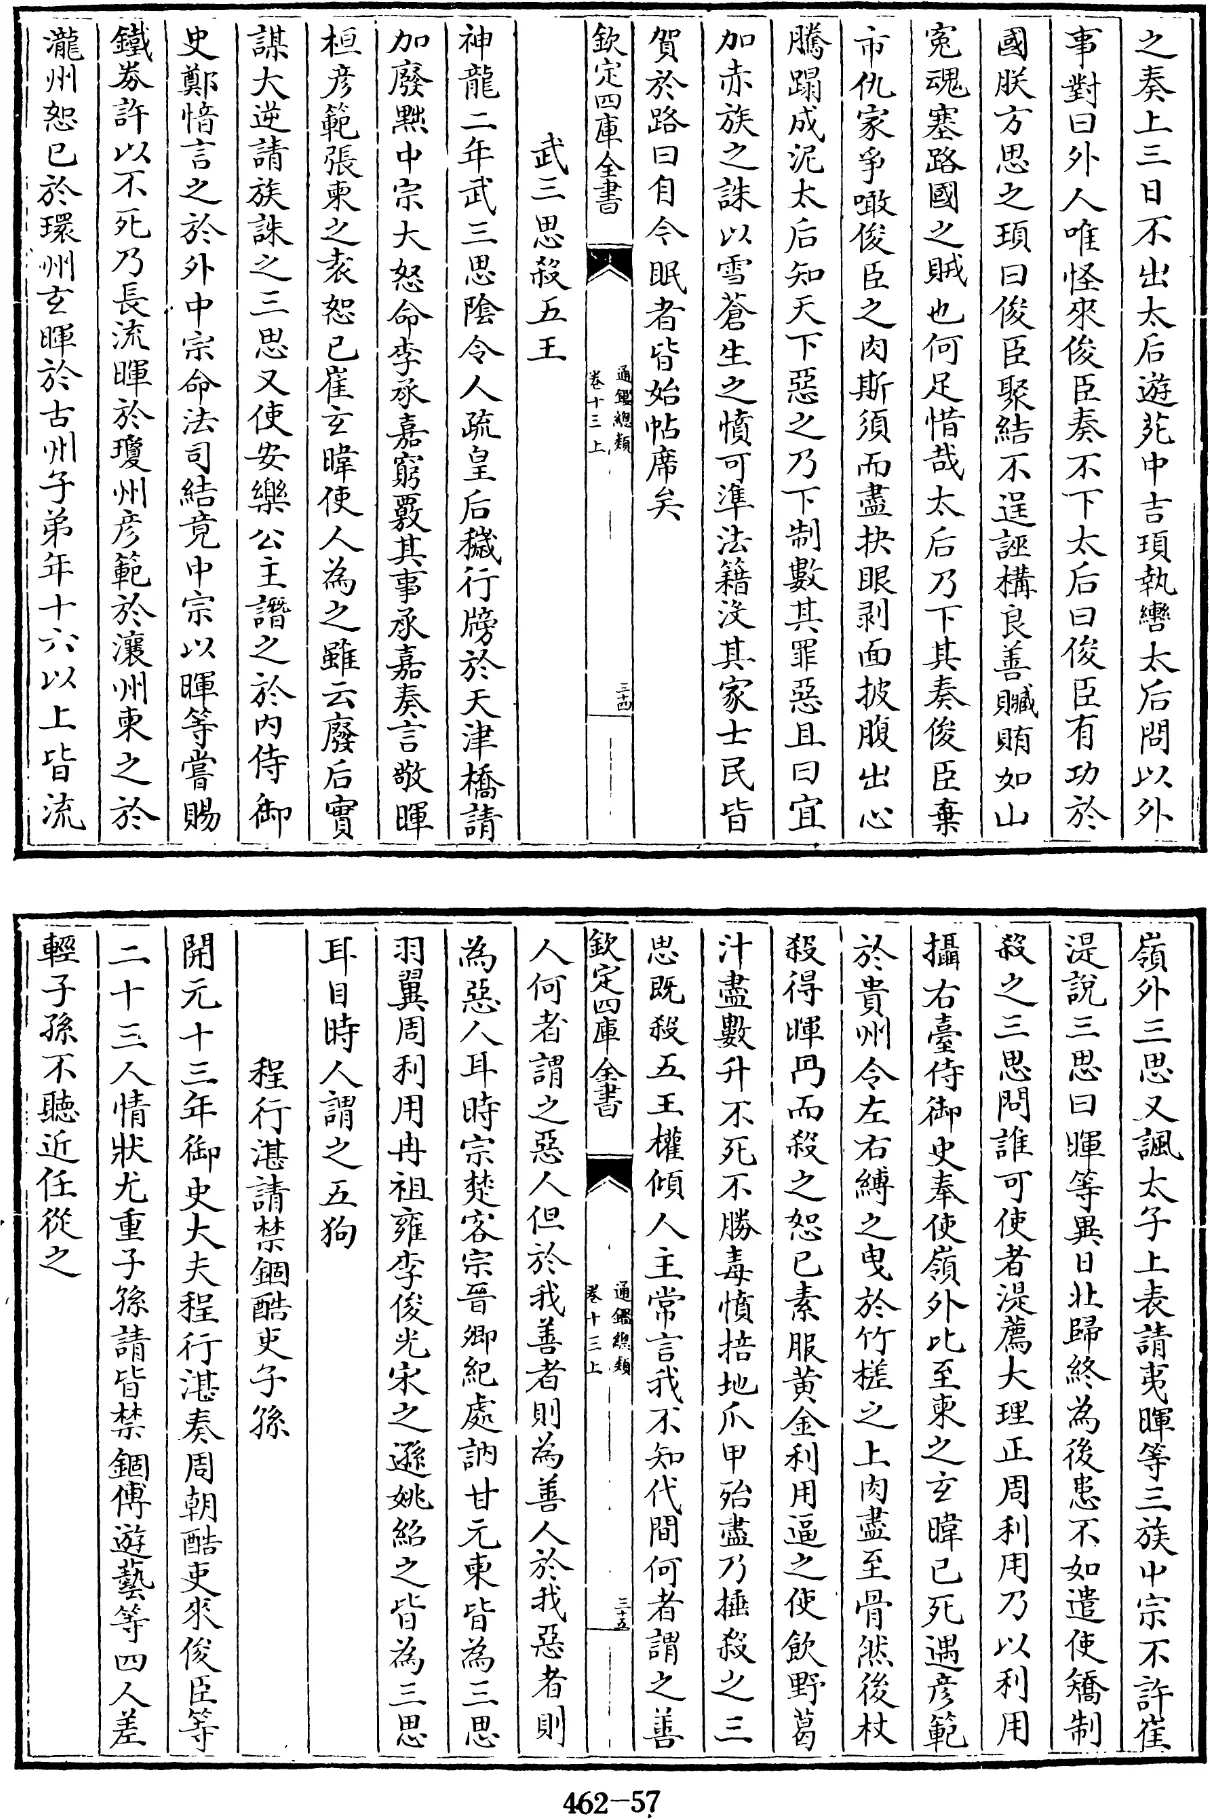 之奏上三日不出太后遊苑中吉頊執轡太后問以外
事對曰外人唯怪來俊臣奏不下太后曰俊臣有功於
國朕方思之頊曰俊臣聚結不逞誣構良善贓賄如山
冤魂塞路國之賊也何足惜哉太后乃下其奏俊臣棄
市仇家爭噉俊臣之肉斯須而盡抉眼剥面披腹出心
騰蹋成泥太后知天下惡之乃下制數其罪惡且曰宜
加赤族之誅以雪蒼生之憤可準法籍沒其家士民皆
賀於路曰自今眠者皆始帖席矣
欽定四庫全書
通鑑總類
卷十三上
三十四
武三思殺五王
神龍二年武三思陰令人疏皇后穢行牓於天津橋請
加廢黜中宗大怒命李承嘉窮覈其事承嘉奏言敬暉
桓彦範張柬之袁恕已崔玄暐使人為之雖云廢后實
謀大逆請族誅之三思又使安樂公主譖之於内侍御
史鄭愔言之於外中宗命法司結竟中宗以暉等嘗賜
鐵券許以不死乃長流暉於瓊州彦範於瀼州柬之於
瀧州恕已於環州玄暉於古州子弟年十六以上皆流
嶺外三思又諷太子上表請夷暉等三族中宗不許崔
湜說三思曰暉等異日北歸終為後患不如遣使矯制
殺之三思問誰可使者湜薦大理正周利用乃以利用
攝右臺侍御史奉使嶺外比至柬之玄暐已死遇彦範
於貴州令左右縛之曳於竹槎之上肉盡至骨然後杖
殺得暉冎而殺之恕已素服黄金利用逼之使飲野葛
汁盡數升不死不勝毒憤掊地爪甲殆盡乃捶殺之三
思既殺五王權傾人主常言我不知代間何者謂之善
欽定四庫全書
通鑑總類
卷十三上
三十五
人何者謂之惡人但於我善者則為善人於我惡者則
為惡人耳時宗楚客宗晉卿紀處訥甘元柬皆為三思
羽翼周利用冉祖雍李俊光宋之遜姚紹之皆為三思
耳目時人謂之五狗
程行湛請禁錮酷吏子孫
開元十三年御史大夫程行湛奏周朝酷吏來俊臣等
二十三人情狀尤重子孫請皆禁錮傅遊藝等四人差
輕子孫不聽近任從之
462-57